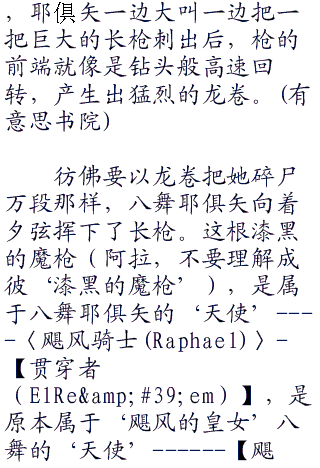 ，耶俱矢一边大叫一边把一
把巨大的长枪刺出后，枪的
前端就像是钻头般高速回
转，产生出猛烈的龙卷。(有
意思书院)
彷佛要以龙卷把她碎尸
万段那样，八舞耶俱矢向着
夕弦挥下了长枪。这根漆黑
的魔枪（阿拉，不要理解成
彼‘漆黑的魔枪’），是属
于八舞耶俱矢的‘天使’---
-〈飓风骑士(Raphael)〉-
【贯穿者
（ElRe&amp;#39;em）】，是
原本属于‘飓风的皇女’八
舞的‘天使’------【飓